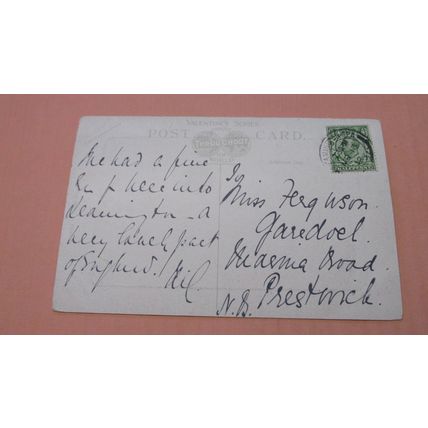 VALENTINE'S SERIES
POST CARD.
THROUGHOUT
We had a fine
run up here into
Leamington - a
very lovely part
of England.
To
Miss Ferguson.
Garedoel.
Marina Road.
Prestwick.
N.B.